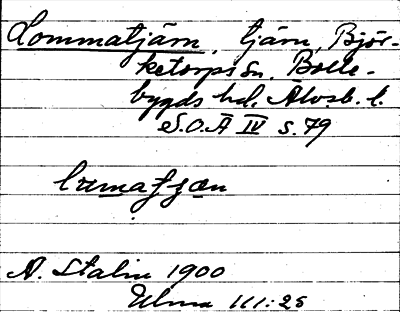 Lommatjärn, tjärn, Björ-
ketorps sn. Bolle-
bygds hd. Älvsb. l.
S.O.Ä IV s. 79
lumatjæn
A. Stalin 1900
Ulma 111:25